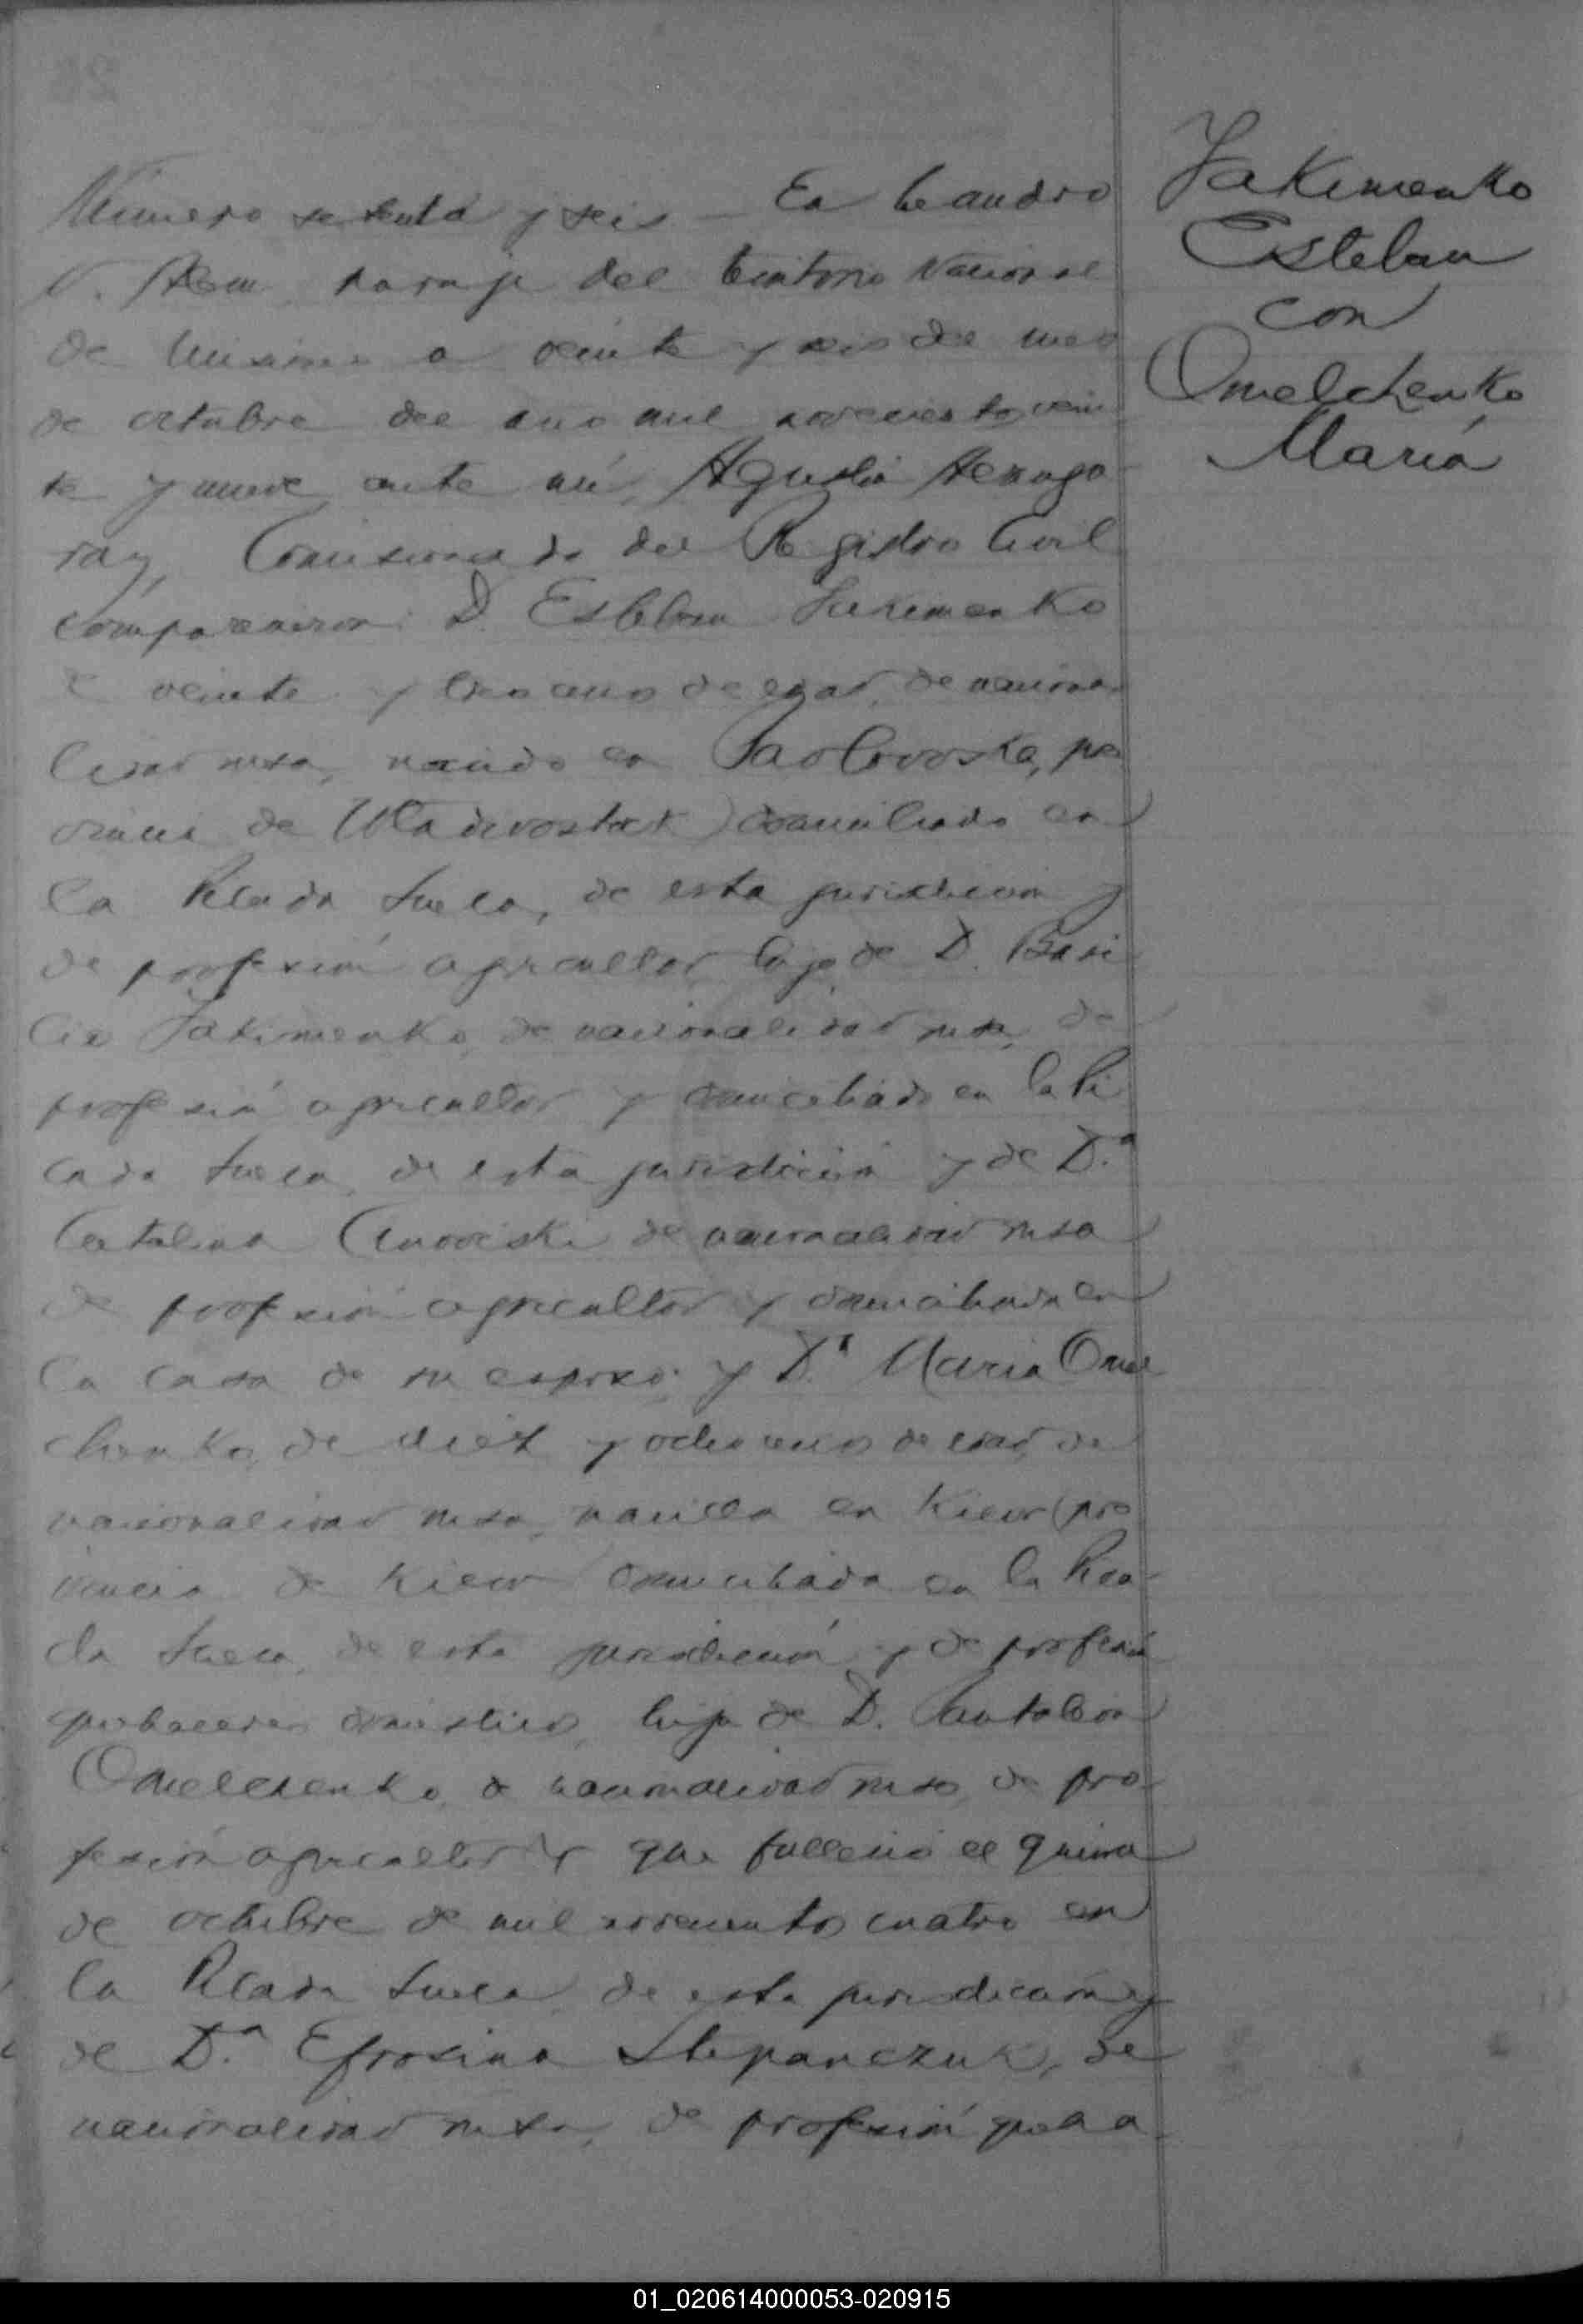 Número setenta y seis — En Leandro
N. Alem, paraje del territorio Nacional
de Misiones a veinte y seis del mes
de octubre del año mil novecientos vein
te y nueve, ante mí, Agustín
Comisionado del Registro Civil
comparecieron: D. Esteban Jakimenko
de veinte y tres años de edad, de naciona
lidad rusa, nacido en Paolovoska, pro
vincia de Wladivostock) domiciliado en
la Picada Sueca, de esta jurisdicción y
de profesión agricultor, hijo de D. Basi
lio Jakimenko, de nacionalidad rusa, de
profesión agricultor y domiciliado en la Pi
cada Sueca, de esta jurisdicción y de D.ª
Catalina de nacionalidad rusa
de profesión agricultor y domiciliada en
la casa de su esposo; y D.ª Maria Omel
chenko, de diez y ocho años de edad, de
nacionalidad rusa, nacida en Kiew (pro
vincia de Kiew) domiciliada en la Pica-
da Sueca, de esta jurisdicción y de profesión
quehaceres domésticos, hija de D. Pantaleon
Omelchenko, de nacionalidad rusa, de pro-
fesión agricultor y que falleció el quince
de octubre de mil novecientos cuatro en
la Picada Sueca de esta jurisdicción y
de D.ª Efrosina Stepanczuk, de
nacionalidad rusa, de profesión queha
Jakimenko
Esteban
con
Omelchenko
María
01_020614000053-020915